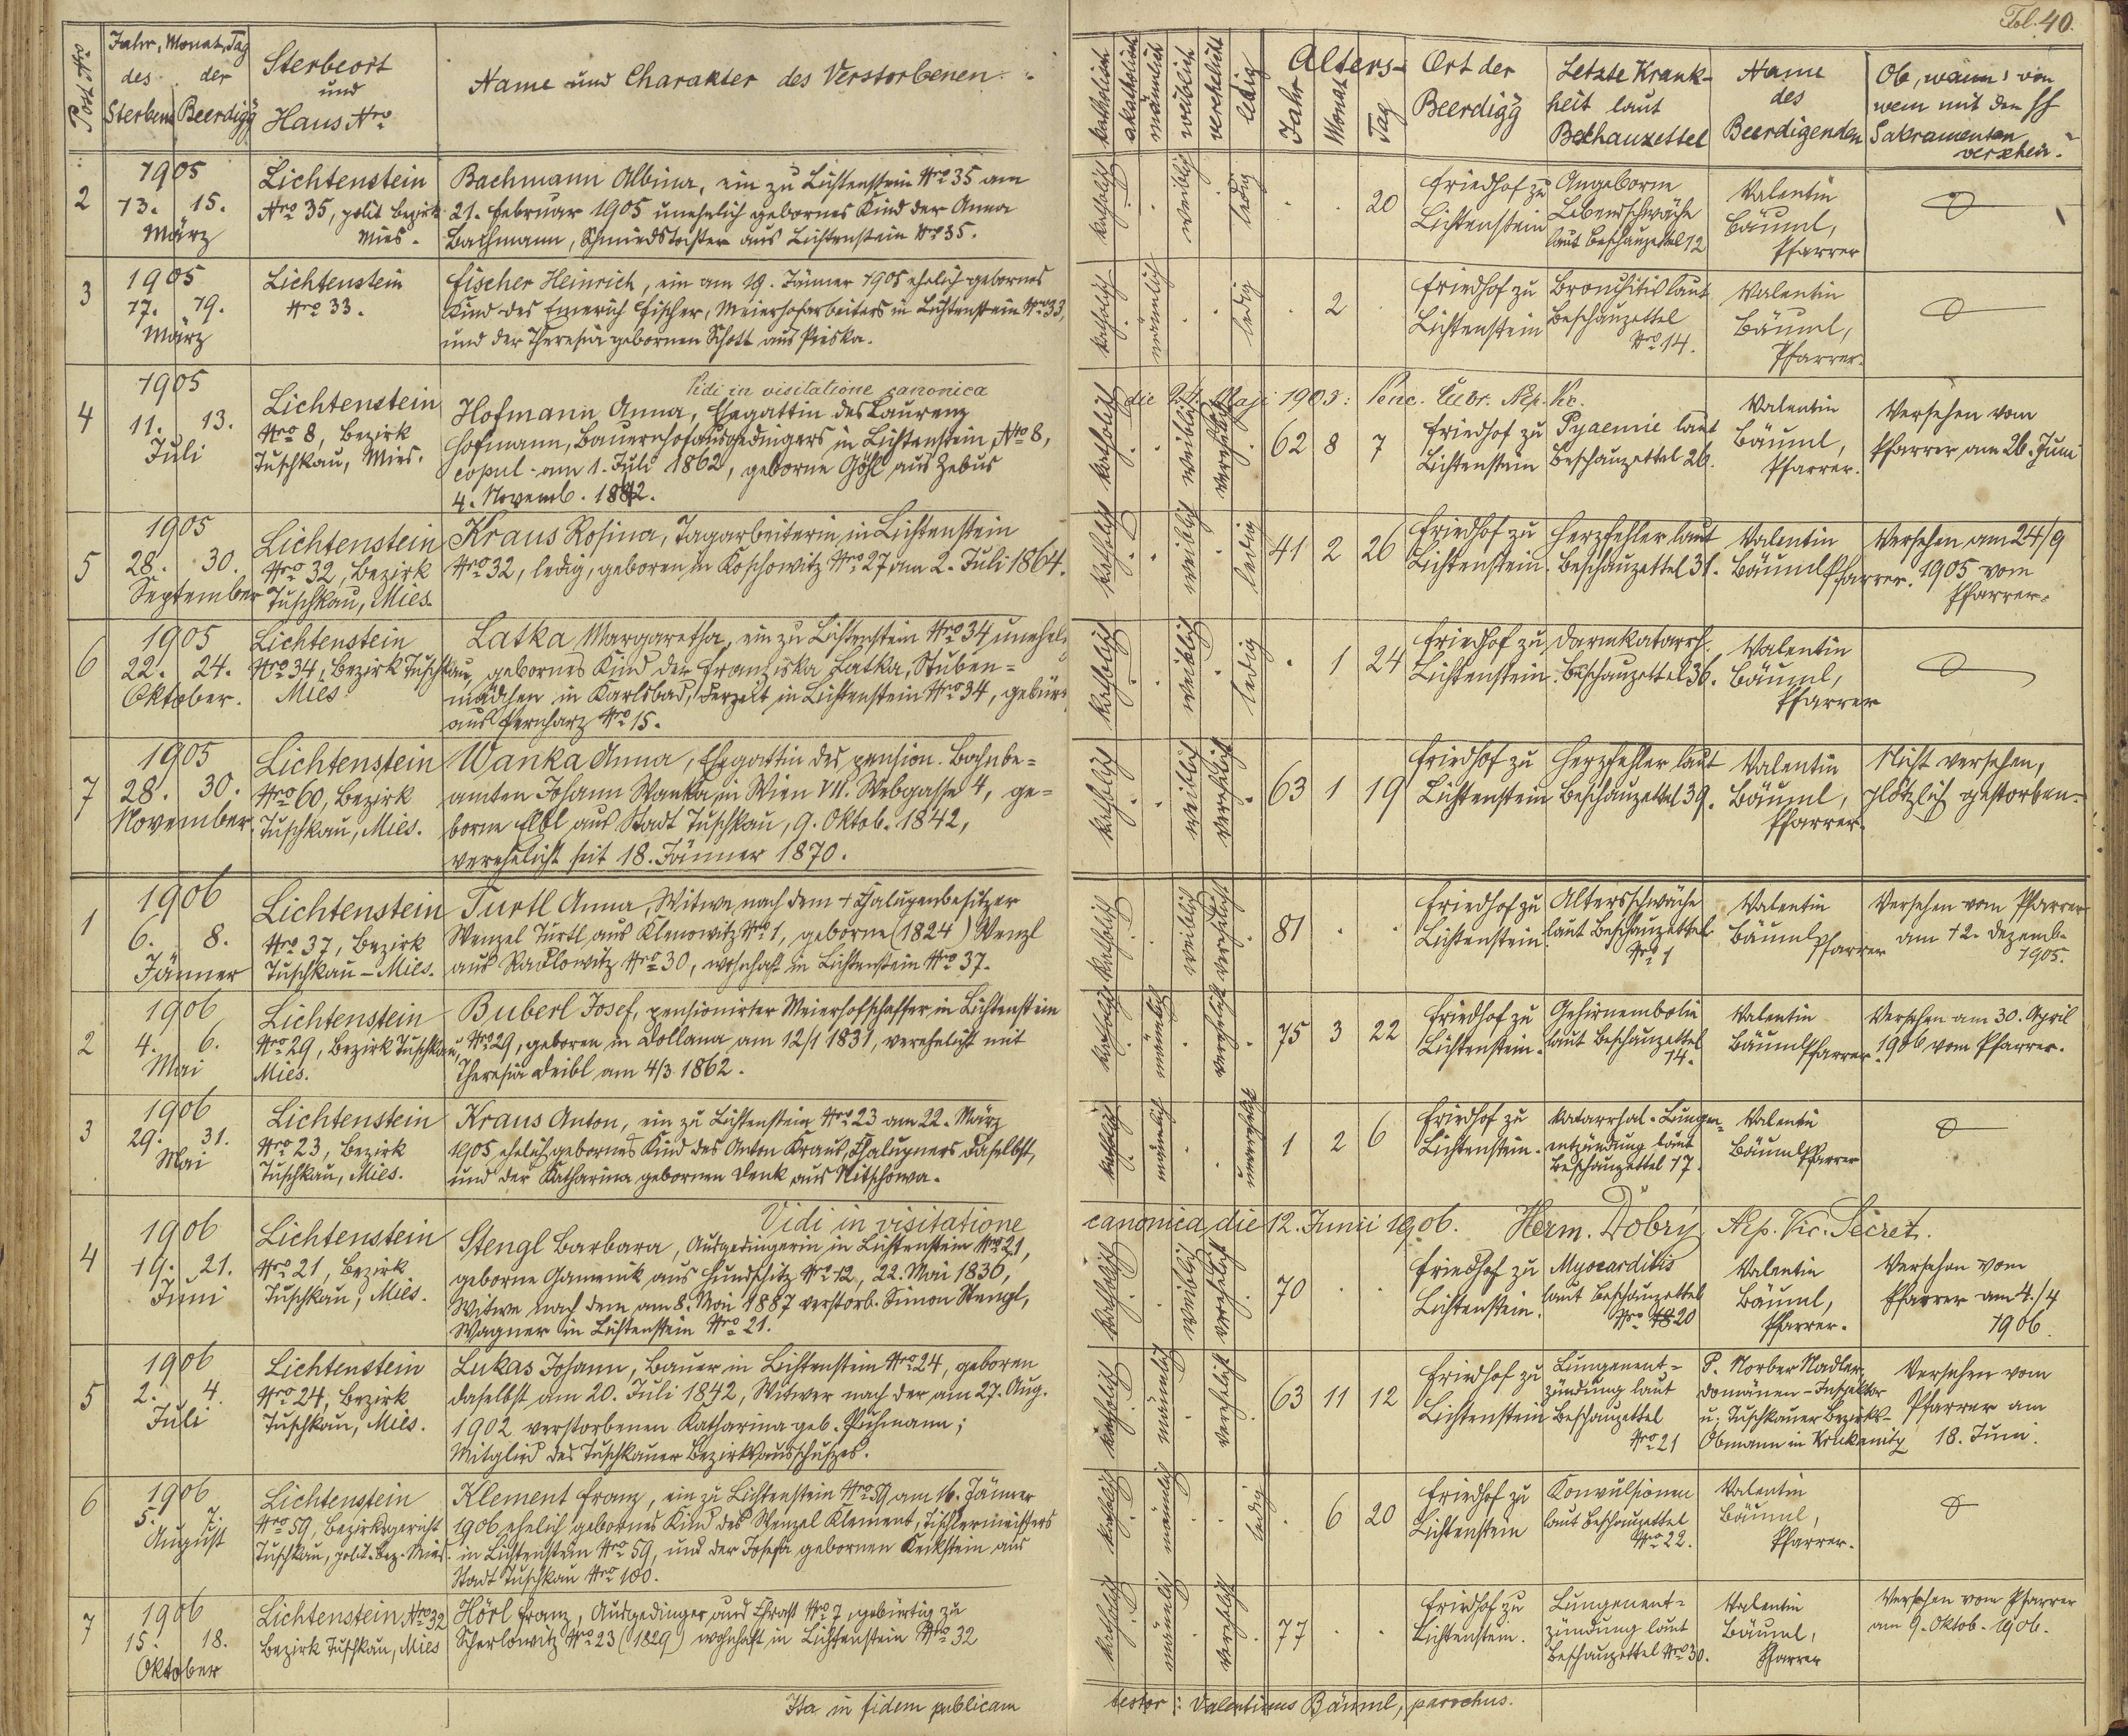 Fol. 40.
Post Nro
Jahr, Monat, Tag
des der
Sterbens Beerdigg
Sterbeort
und
Haus Nro
Name und Charakter des Verstorbenen.
katholisch
akatholisch
männlich
weiblich
verehelicht
ledig
Alters-
Jahr
Monat
Tag
Ort der
Beerdigg
Letzte Krank-
heit laut
Beschauzettel
Name
des
Beerdigenden
Ob, wann, von
wem mit den hh
Sakramenten
versehen.
2
1905
13. 15.
März
Lichtenstein
Nro 35, polit. Bezirk
Mies.
Bachmann Albina, ein zu Lichtenstein Nro 35 am
21. Februar 1905 unehelich gebornes Kind der Anna
Bachmann, Schmiedstochter aus Lichtenstein Nro 35.
katholisch
weiblich
ledig
20
Friedhof zu
Lichtenstein
Angeborne
Lebensschwäche
laut Beschauzettel 12
Valentin
Bäuml,
Pfarrer
3
1905
17. 19.
März
Lichtenstein
Nro 33.
Fischer Heinrich, ein am 19. Jänner 1905 ehelich gebornes
Kind des Emerich Fischer, Meierhofarbeiters in Lichtenstein Nro 33,
und der Theresia gebornen Schott aus Piska.
katholisch
männlich
ledig
2
Friedhof zu
Lichtenstein
Bronchitis laut
Beschauzettel
Nro 14.
Valentin
Bäuml,
Pfarrer.
Vidi in visitatione canonica
die 24. Maji 1905:
4
1905
11. 13.
Juli
Lichtenstein
Nro 8, Bezirk
Tuschkau, Mies.
Hofmann Anna, Ehegattin des Laurenz
Hofmann, Bauernhofausgedingers in Lichtenstein, Nro 8,
copul. am 1. Juli 1862, geborne Göhl aus Zebus
4. Novemb. 1842.
katholisch
weiblich
verehelicht
62 8 7
Friedhof zu
Lichtenstein
Pyaemie laut
Beschauzettel 26.
Valentin
Bäuml,
Pfarrer.
Versehen vom
Pfarrer am 26. Juni
5
1905
28. 30.
September
Lichtenstein
Nro 32, Bezirk
Tuschkau, Mies.
Kraus Rosina, Tagarbeiterin in Lichtenstein
Nro 32, ledig, geboren in Koschowitz Nro 27 am 2. Juli 1864.
katholisch
weiblich
ledig
41 2 26
Friedhof zu
Lichtenstein.
Herzfehler laut
Beschauzettel 31.
Valentin
Bäuml Pfarrer.
Versehen am 24/9
1905 vom
Pfarrer.
6
1905
22. 24.
Oktober.
Lichtenstein
Nro 34, Bezirk Tuschkau,
Mies
Latka Margaretha, ein zu Lichtenstein Nro 34 unehel.
gebornes Kind der Franziska Latka, Stuben=
mädchen in Karlsbad, derzeit in Lichtenstein Nro 34, gebür.
aus Pernharz Nro 15.
katholisch
weiblich
ledig
1 24
Friedhof zu
Lichtenstein.
Darmkatarrh.
Beschauzettel 36.
Valentin
Bäuml,
Pfarrer
7
1905
28. 30.
November
Lichtenstein
Nro 60, Bezirk
Tuschkau, Mies.
Wanka Anna, Ehegattin des pension. Bahnbe=
amten Johann Wanka, in Wien VII. Webgasse 4, ge=
borne Elbl aus Stadt Tuschkau, 9. Oktob. 1842,
verehelicht seit 18. Jänner 1870.
katholisch
weiblich
verehelicht
63 1 19
Friedhof zu
Lichtenstein
Herzfehler laut
Beschauzettel 39.
Valentin
Bäuml,
Pfarrer.
Nicht versehen,
plötzlich gestorben.
1
1906
6. 8.
Jänner
Lichtenstein
Nro 37, Bezirk
Tuschkau-Mies.
Turtl Anna, Witwe nach dem + Chalupenbesitzer
Wenzel Turtl aus Klenowitz Nro 1, geborne (1824) Wenzl
aus Radlowitz Nro 30, wohnhaft in Lichtenstein Nro 37.
katholisch
weiblich
verehelicht
81
Friedhof zu
Lichtenstein
Altersschwäche
laut Beschauzettel
Nro 1
Valentin
Bäuml Pfarrer
Versehen vom Pfarrer
am 12. Dezemb.
1905.
2
1906
4. 6.
Mai
Lichtenstein
Nro 29, Bezirk Tuschkau,
Mies.
Buberl Josef, pensionirter Meierhofschaffer in Lichtenstein
Nro 29, geboren in Dollana am 12/1 1831, verehelicht mit
Theresia Deibl am 4/3 1862.
katholisch
männlich
verehelicht
75 3 22
Friedhof zu
Lichtenstein.
Gehirnembolie
laut Beschauzettel
14.
Valentin
Bäuml Pfarrer.
Versehen am 30. April
1906 vom Pfarrer.
3
1906
29. 31.
Mai
Lichtenstein
Nro 23, Bezirk
Tuschkau, Mies.
Kraus Anton, ein zu Lichtenstein Nro 23 am 22. März
1905 ehelich gebornes Kind des Anton Kraus, Chalupners daselbst,
und der Katharina gebornen Denk aus Nitschowa.
katholisch
männlich
unverehelicht
1 2 6
Friedhof zu
Lichtenstein.
Katarrhal-Lungen=
entzündung laut
Beschauzettel 17.
Valentin
Bäuml Pfarrer
Vidi in visitatione
canonica die 12. Junii 1906. Herm. Dobrý Aep. Vic. Secret.
4
1906
19. 21.
Juni
Lichtenstein
Nro 21, Bezirk
Tuschkau, Mies.
Stengl Barbara, Ausgedingerin in Lichtenstein Nro 21,
geborne Gammik aus Hundschitz Nro 12, 22. Mai 1836,
Witwe nach dem am 8. Mai 1887 verstorb. Simon Stengl,
Wagner in Lichtenstein Nro 21.
katholisch
weiblich
verehelicht
70
Friedhof zu
Lichtenstein.
Myocarditis
laut Beschauzettel
Nro 18 20
Valentin
Bäuml,
Pfarrer.
Versehen vom
Pfarrer am 4./4
1906.
5
1906
2. 4.
Juli
Lichtenstein
Nro 24, Bezirk
Tuschkau, Mies.
Lukas Johann, Bauer in Lichtenstein Nro 24, geboren
daselbst am 20. Juli 1842, Witwer nach der am 27. Aug.
1902 verstorbenen Katharina geb. Puhmann;
Mitglied des Tuschkauer Bezirksausschußes.
katholisch
männlich
verehelicht
63 11 12
Friedhof zu
Lichtenstein
Lungenent=
zündung laut
Beschauzettel
Nro 21
P. Norber Nadler,
Domänen-Inspektor
u. Tuschkauer Bezirks-
Obmann in Krukanitz
Versehen vom
Pfarrer am
18. Juni.
6
1906
5. 7.
August
Lichtenstein
Nro 59, Bezirksgericht
Tuschkau, polit. Bez. Mies.
Klement Franz, ein zu Lichtenstein Nro 59 am 16. Jänner
1906 ehelich gebornes Kind des Wenzel Klement, Tischlermeisters
in Lichtenstein Nro 59, und der Josefa gebornen Keckstein aus
Stadt Tuschkau Nro 100.
katholisch
männlich
ledig
6 20
Friedhof zu
Lichtenstein
Konvulsionen
laut Beschauzettel
Nro 22.
Valentin
Bäuml,
Pfarrer.
7
1906
15. 18.
Oktober
Lichtenstein Nro 32
Bezirk Tuschkau, Mies
Hörl Franz, Ausgedinger aus Thrast Nro 7, gebürtig zu
Scherlowitz Nro 23 (1829) wohnhaft in Lichtenstein Nro 32
katholisch
männlich
verehelicht
77
Friedhof zu
Lichtenstein.
Lungenent=
zündung laut
Beschauzettel Nro 30.
Valentin
Bäuml,
Pfarrer
Versehen vom Pfarrer
am 9. Oktob. 1906.
Ita in fidem publicam
testor: Valentinus Bäuml, parochus.